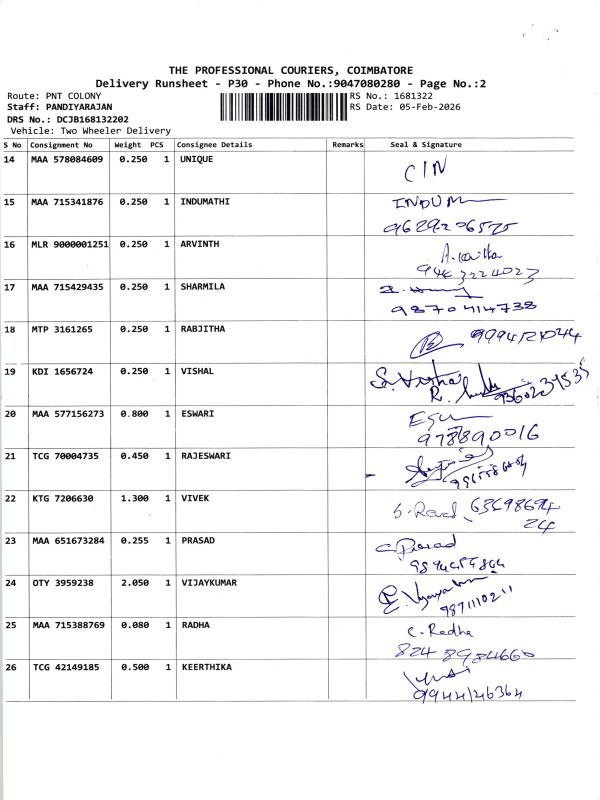 THE PROFESSIONAL COURIERS, COIMBATORE
Delivery Runsheet - P30 - Phone No.:9047080280 - Page No.:2
Route: PNT COLONY RS No.: 1681322
Staff: PANDIYARAJAN RS Date: 05-Feb-2026
DRS No.: DCJB168132202
Vehicle: Two Wheeler Delivery
S No Consignment No Weight PCS Consignee Details Remarks Seal & Signature
14 MAA 578084609 0.250 1 UNIQUE CIN
15 MAA 715341876 0.250 1 INDUMATHI INDUM
16 MLR 9000001251 0.250 1 ARVINTH
9463224023
17 MAA 715429435 0.250 1 SHARMILA
9870414738
18 MTP 3161265 0.250 1 RABJITHA
19 KDI 1656724 0.250 1 VISHAL S. Vishal
20 MAA 577156273 0.800 1 ESWARI
978890016
21 TCG 70004735 0.450 1 RAJESWARI
22 KTG 7206630 1.300 1 VIVEK
24
23 MAA 651673284 0.255 1 PRASAD C. Prasad
24 OTY 3959238 2.050 1 VIJAYKUMAR
9871110211
25 MAA 715388769 0.080 1 RADHA C. Radha
824 8984660
26 TCG 42149185 0.500 1 KEERTHIKA
9944146364